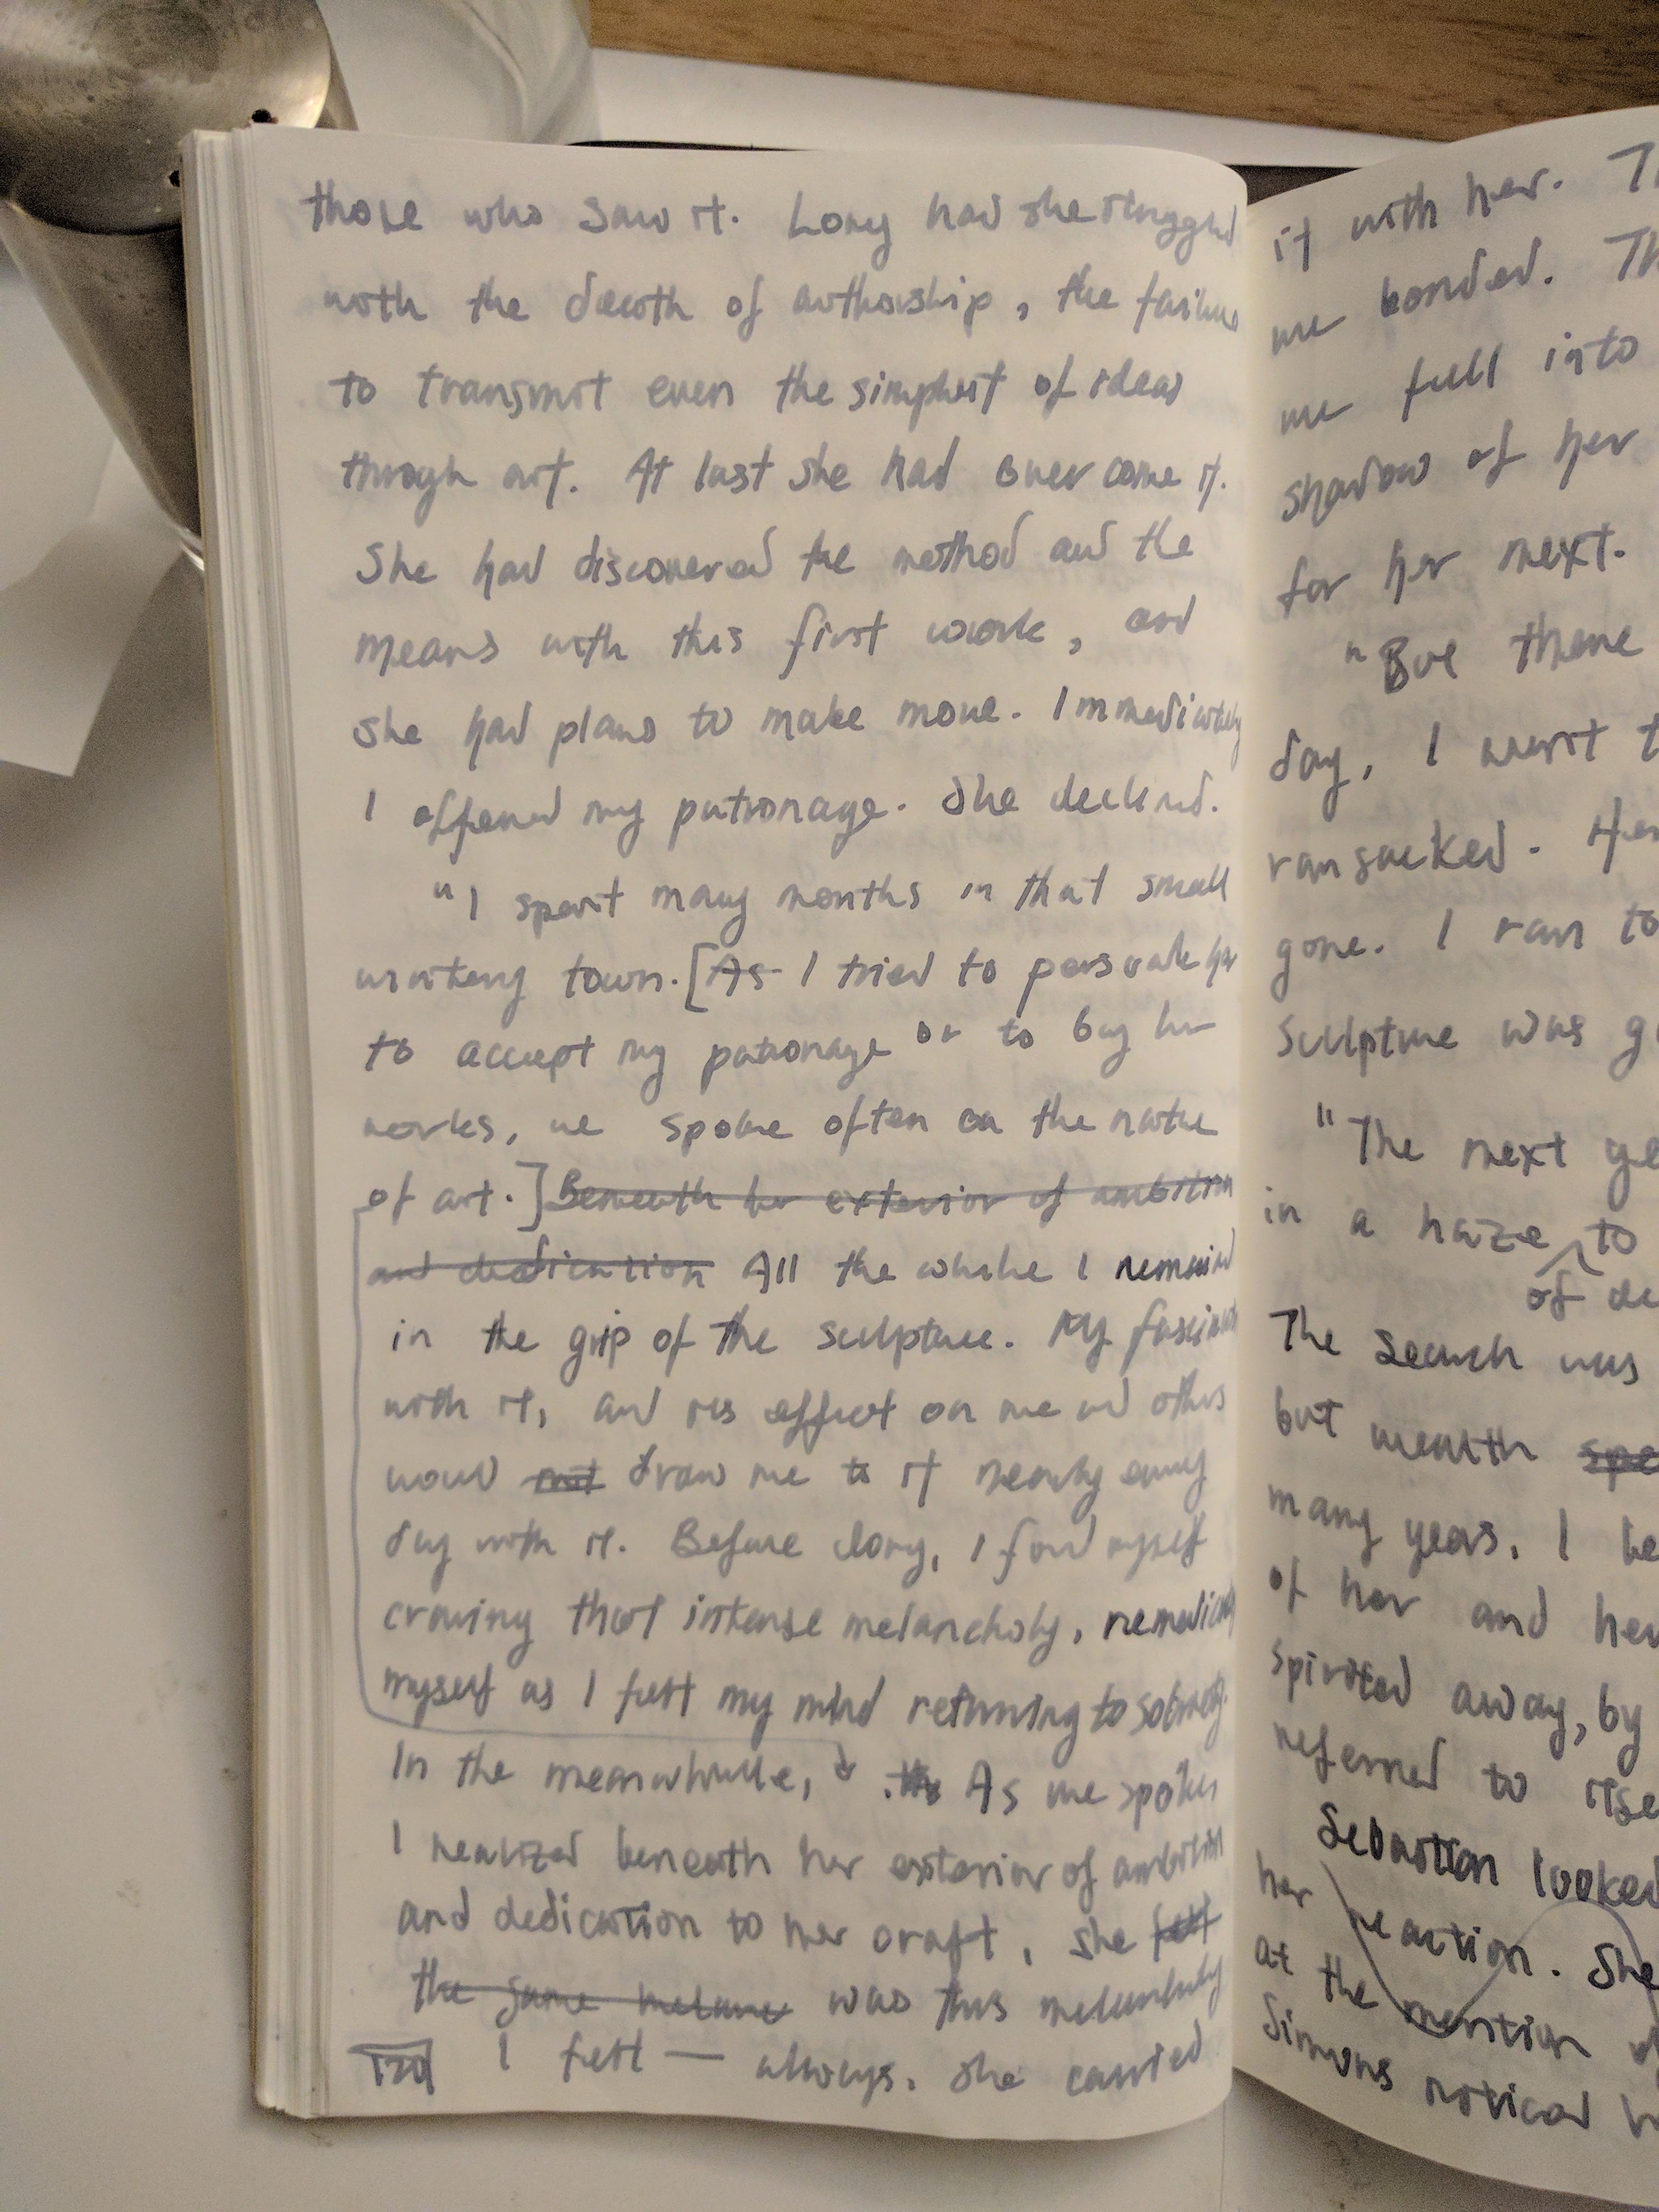 those who saw it. Long had she struggled
with the dearth of authorship, the failure
to transmit even the simplest of ideas
through art. At last she had overcome it.
She had discovered the method and the
means with this first work, and
she had plans to make more. Immediately
I offered my patronage. She declined.
"I spent many months in that small
town. [As I tried to persuade her
to accept my patronage or to buy her
works, we spoke often on the nature
of art.] Beneath her exterior of ambition
and dedication All the while I remained
in the grip of the sculpture. My fascination
with it, and its effect on me and others
would not draw me to it nearly every
day with it. Before long, I found myself
craving that intense melancholy,
myself as I felt my mind returning to sobriety.
In the meanwhile, As we spoke
I realized beneath her exterior of ambition
and dedication to her craft, she felt
the same melanc was this melancholy
120 I felt — always. She carried
it with her. T
we bonded. Th
we fell into
shadow of her
for her next.
"But there
day, I went t
ransacked. Her
gone. I ran to
sculpture was g
"The next ye
in a haze to
of de
The search was
but wealth spe
many years. I he
of her and her
spirited away, by
referred to itse
Sebastian looked
her reaction. She
at the mention of
Simons noticed h